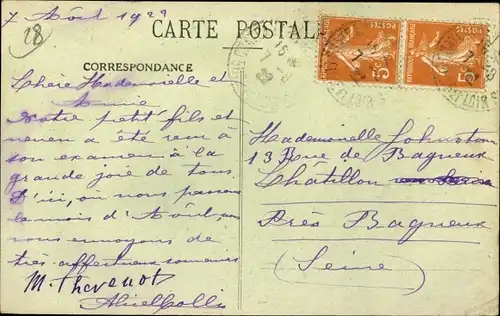 7 Août 1922
28
CARTE POSTALE
CORRESPONDANCE
Chère Mademoiselle et
Amie
Notre petit fils et
neveu a été reçu à
son examen à la
grande joie de tous.
D'ici, ou nous passons
le mois d'Août, nous
vous envoyons de
très affectueux souvenirs
M. Thevenot
REPUBLIQUE FRANÇAISE
POSTES
5c
REPUBLIQUE FRANÇAISE
POSTES
5c
Mademoiselle Johnston
13 Rue de Bagneux
Chatillon
Près Bagneux
(Seine)